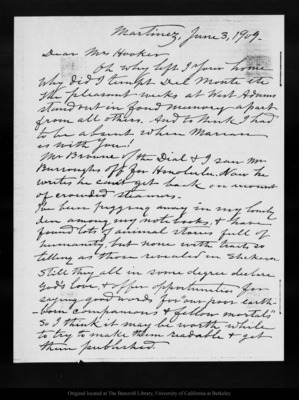 Martinez, June 3, 1909.
Dear Mrs Hooker
Oh why left I your home
why did I Del Monte etc
The pleasant weeks at West Adams
stand out in fond memory apart
from all others. And to think I had
to be absent when Marian
is with you!
Mr Browne of the Dial & I saw Mr
Burroughs off for Honolulu. Now he
writes he can't get back on account
of crowded steamers.
I've been away in my lonely
den among my note books, & have
found lots of animal stories full of
humanity, but none with traits so
telling as those revealed in Stickeen
Still they all in some degree declare
God's love, & offer opportunities for
saying good words for our poor "earth-
-born companions & fellow mortals"
So I think it may be worth while
to try to make them readable & get
them published.
Original located at The Bancroft Library, University of California at Berkeley